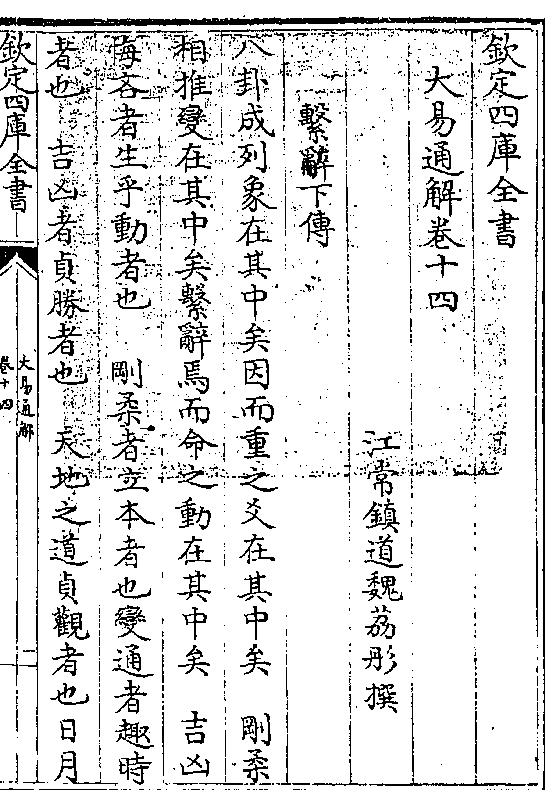 欽定四庫全書
大易通解卷十四
江常鎮道魏荔彤撰
繫辭下傳
八卦成列象在其中矣因而重之爻在其中矣　剛柔
相推變在其中矣繫辭焉而命之動在其中矣　吉凶
悔吝者生乎動者也　剛柔者立本者也變通者趣時
者也　吉凶者貞勝者也　天地之道貞觀者也日月
欽定四庫全書
大易通解
卷十四
一